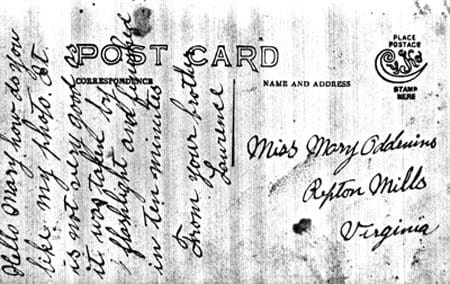 POST CARD
CORRESPONDENCE
NAME AND ADDRESS
PLACE
POSTAGE
STAMP
HERE
Hello Mary, how do you
like my photo. It
is not very good as
it was taken by
flashlight and finished
in ten minutes
From your brother
Laurence
Miss Mary Oddenino
Repton Mills
Virginia